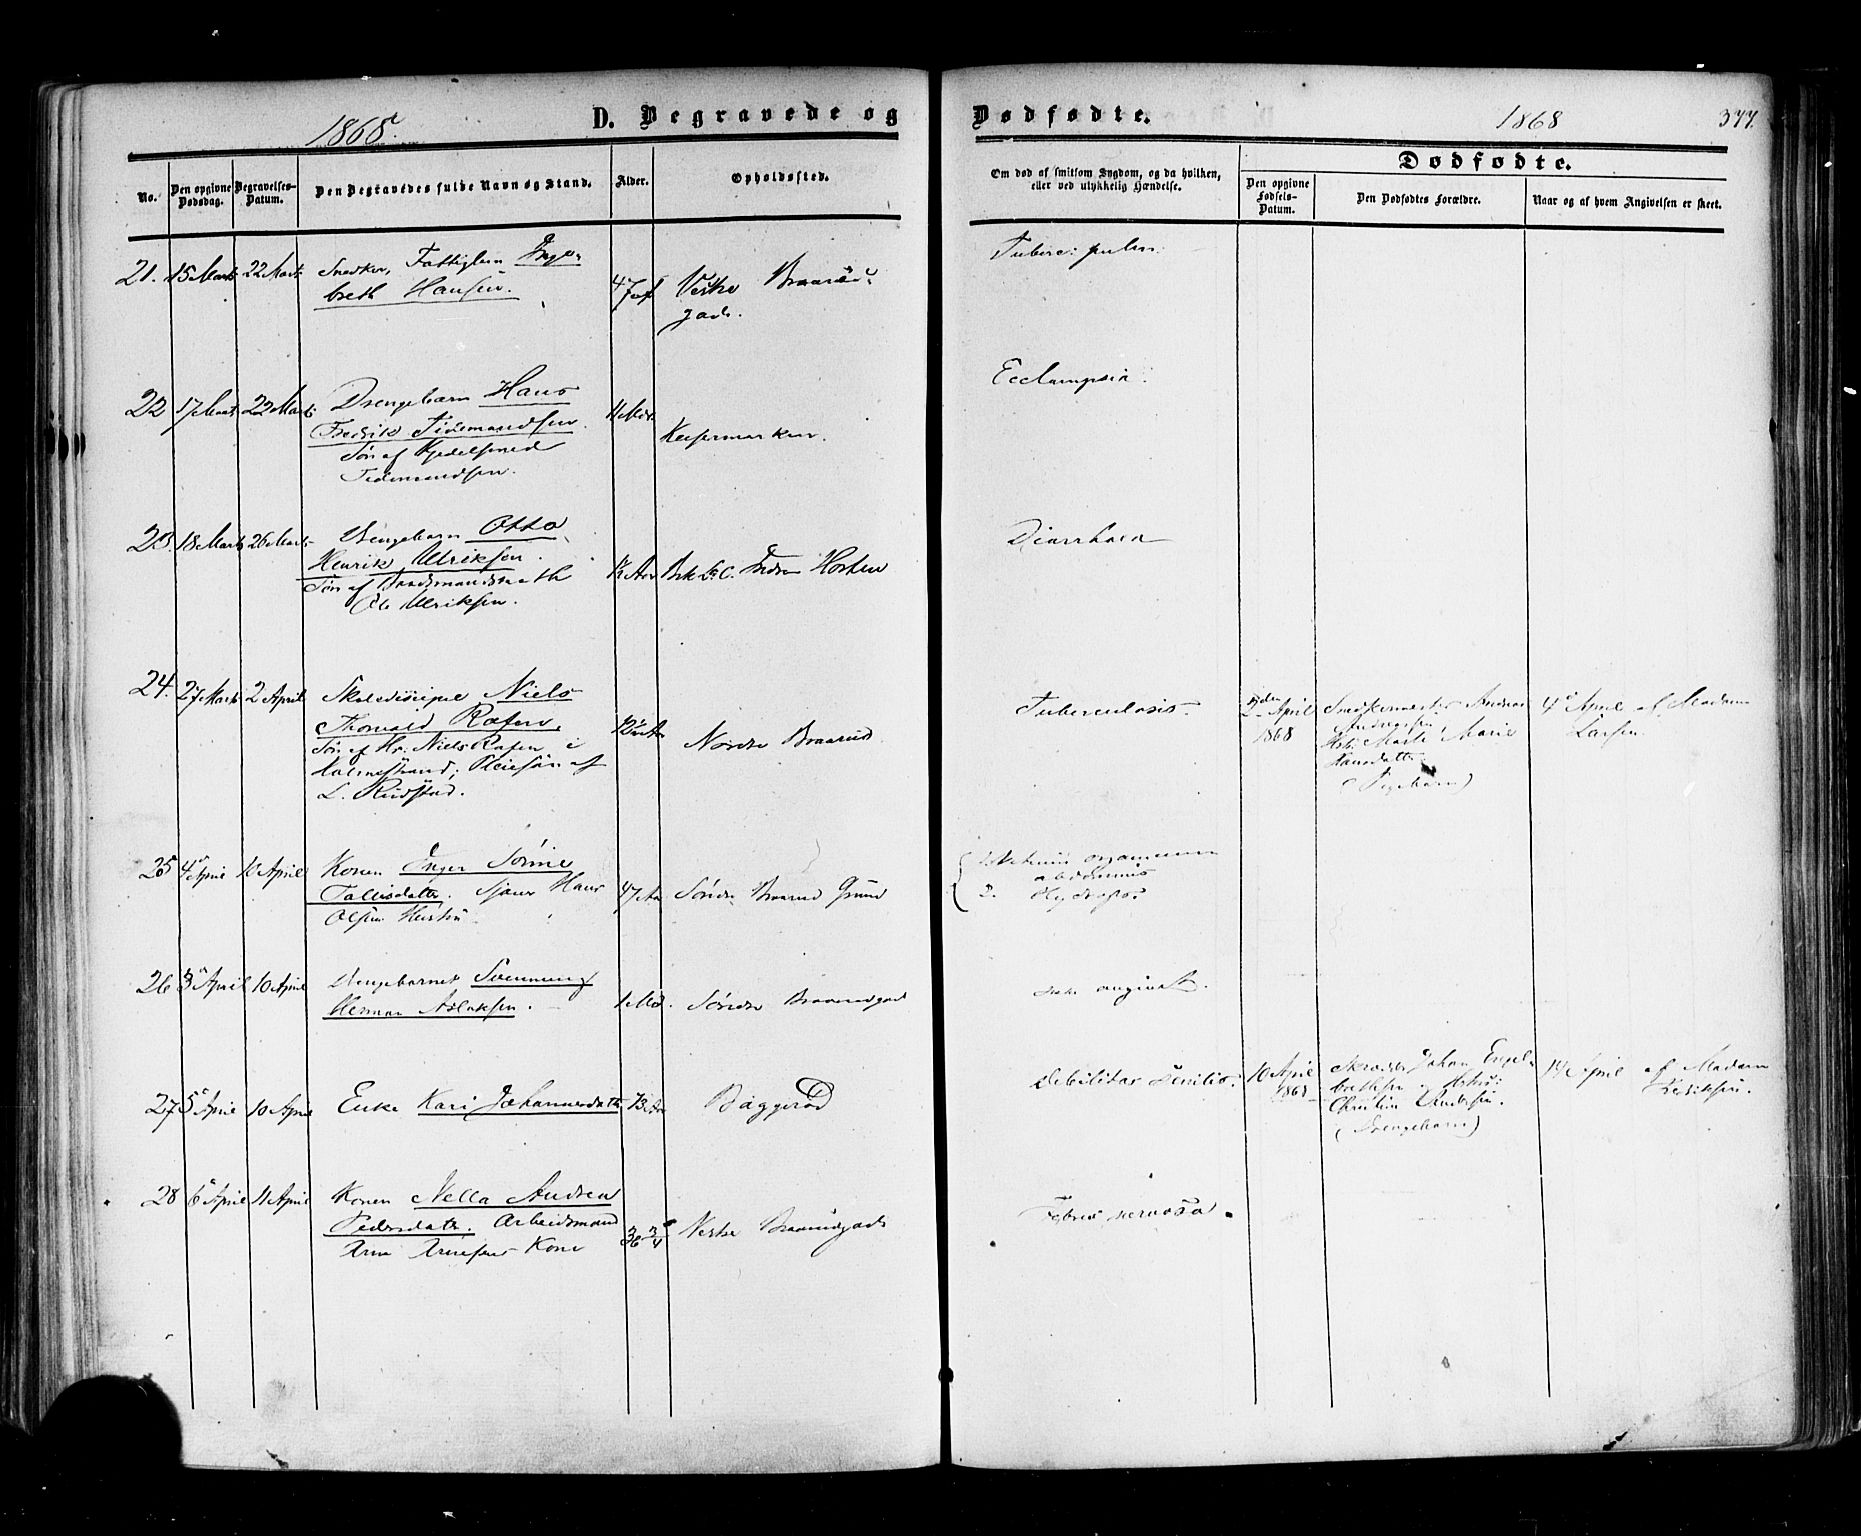 1868.
D. Begravede og
Dødfødte.
1868
377.
No.
Den opgivne Dødsdag.
Begravelses-Datum.
Den Begravedes fulde Navn og Stand.
Alder.
Opholdssted.
Om død af smitsom Sygdom, og da hvilken,
eller ved ulykkelig Hændelse.
Dødfødte.
Den opgivne Fødsels-Datum.
Den Dødfødtes Forældre.
Naar og af hvem Angivelsen er skeet.
21. 15 Marts 22 Marts Snedker, Fattiglem Inge-
breth Hansen.
47
Vestre
Tuberc: pulm:
22 17 Marts 22 Marts Drengebarn Hans
Fredrik Tidemandsen.
Søn af
Tidemandsen.
11 Md.
Ecclampsia.
23. 18 Marts 26 Marts Drengebarn Otto
Henrik Ulriksen.
Søn af
Ole Ulriksen.
Horten
Diarrhoea
24. 27 Marts 2 April Skoledisipel Niels
Thorvald Rafen,
Søn af Hr. Niels Rafen i
Holmestrand; Pleiesøn af
L. Rudstad.
Nordre Braarud
Tuberculosis.
2den April
1868
Snedkermester Andreas
Andreassen
Hst: Marie
Hansdatter
(Pigebarn)
4de April af Madam
Larsen
25 4 April 10 April Konen Inger Sørine
Tollefsdatter. Hans
Olsens Hustru
47 Aar
Søndre Braarud Grund
1.
abdominis
2. Hydrops
26 3 April 10 April Drengebarnet Svenning
Herman Aslaksen.
1 Md.
Søndre Braarudgade
ikke angivet.
27 5 April 10 April Enke Kari Johannesdatter
73 Aar
Baggerød
Debilitas senilis.
10 April
1868
Johan Engel-
brethsen Hstru:
Christine
(Drengebarn)
14 April af Madam
28 6 April 11 April Konen Nella Andrea
Pedersdatter. Arbeidsmand
Arne Arnesens Kone
36 3/4
Vestre Braarudgade
Febris nervosa.